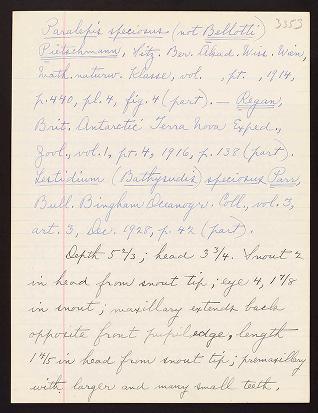 3353
Paralepis speciosus (not Bellotti)
Pietschmann, Sitz. Ber. Akad. Wiss. Wien,
Math. naturw. Klasse, vol. , pt. , 1914,
p. 440, pl. 4, fig. 4 (part). — Regan,
Brit. Antarctic Terra Nova Exped.,
Zool., vol. 1, pt. 4, 1916, p. 138 (part).
Lestidium (Bathysudis) speciosus Parr,
Bull. Bingham Oceanogr. Coll., vol. 3,
art. 3, Dec. 1928, p. 42 (part).
Depth 5 2/3; head 3 3/4. Snout 2
in head from snout tip; eye 4, 1 7/8
in snout; maxillary extends back
opposite front pupil edge, length
1 4/5 in head from snout tip; premaxillary
with larger and many small teeth,